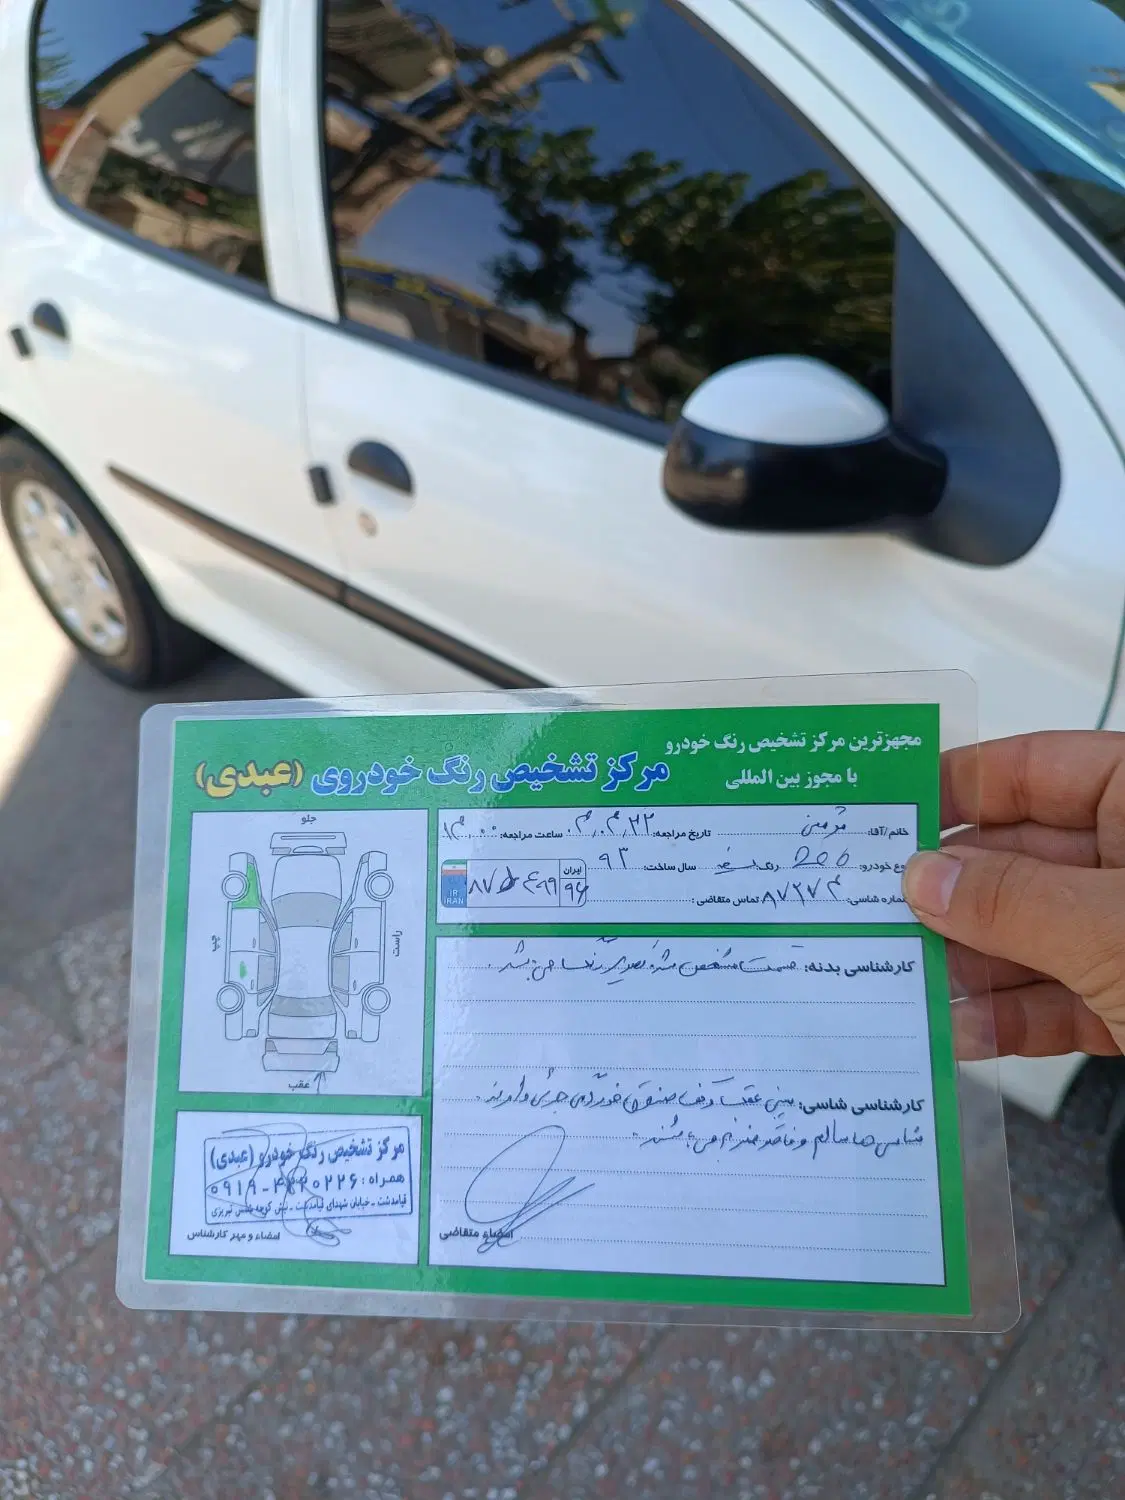 مجهزترین مرکز تشخیص رنگ خودرو
با مجوز بین المللی
مرکز تشخیص رنگ خودروی (عبدی)
خانم/آقا: تاریخ مراجعه: ۰۴,۰۴,۲۲ ساعت مراجعه: ۱۴,۰۰
وع خودرو: 206 رنگ: سفید سال ساخت: ۹۳
ماره شاسی: ۸۷۲۷۴ تماس متقاضی:
ایران
۹۶
۴۹۹ ۸۷
I.R.
IRAN
جلو
چپ
راست
عقب
کارشناسی بدنه: قسمت مشخص شده بصورت رنگ می باشد.
کارشناسی شاسی: سینی عقب و کف صندوق خوردگی جزئی دارند.
شاسی ها سالم و فاقد ضربه می باشند.
امضاء متقاضی
مرکز تشخیص رنگ خودرو (عبدی)
همراه: ۰۹۱۹-۴۲۲۰۲۲۶
قیامدشت - خیابان شهدای قیامدشت - نبش کوچه تبریزی
امضاء و مهر کارشناس